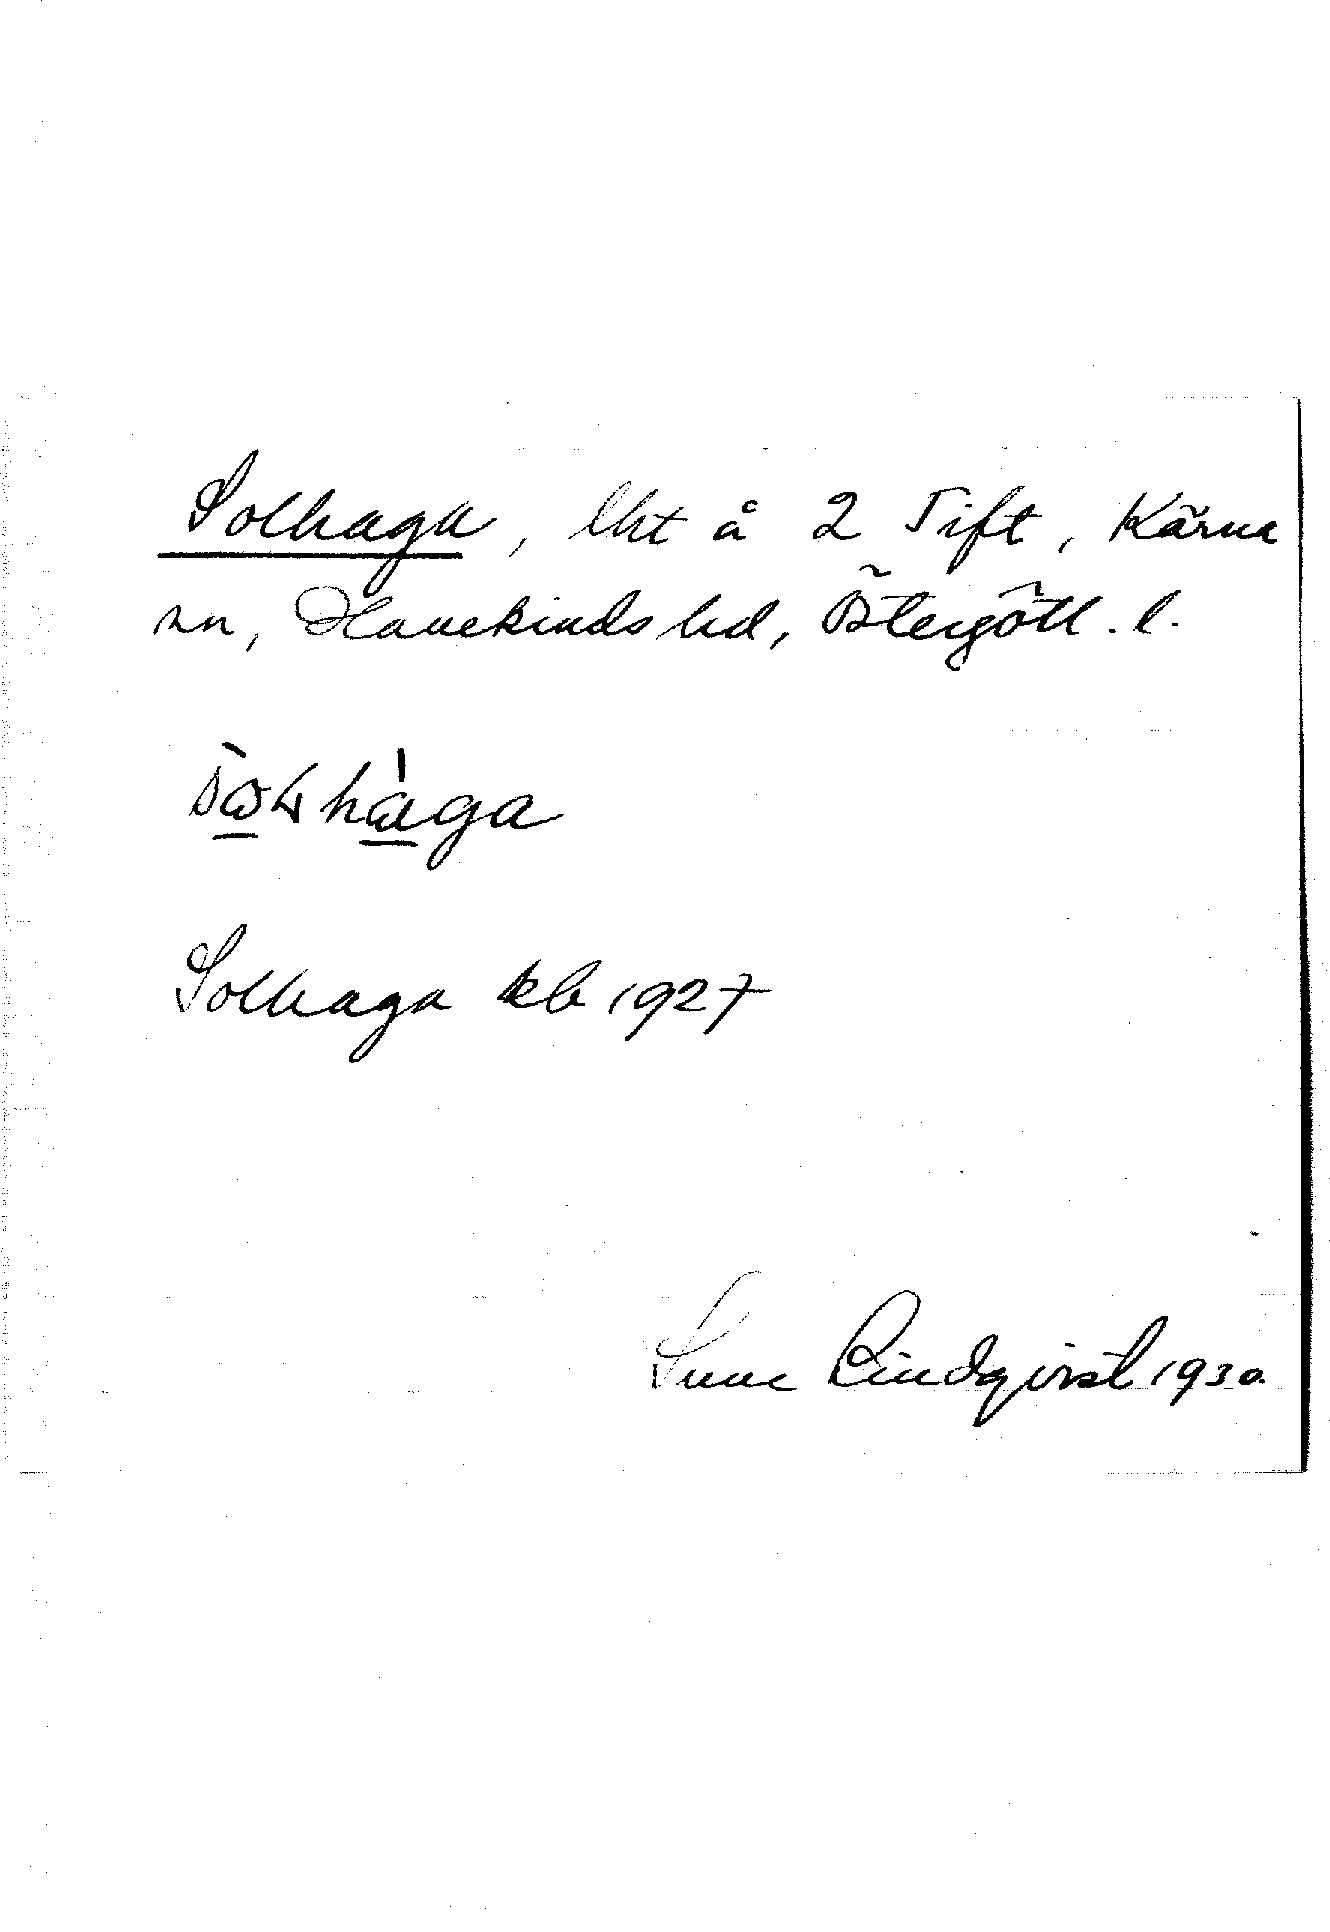 Solhaga, lht å 2 Tift, Kärna
sn, Hanekinds hd, Östergötl. l.
Solhaga kb 1927
Sune Lindqvist 1930.